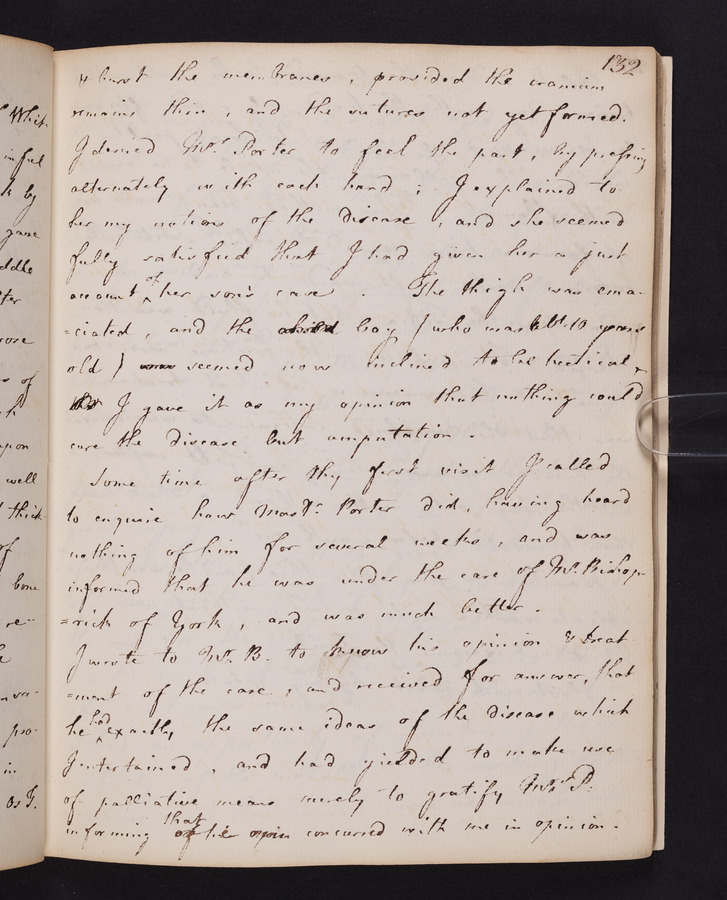 132
& burst the membranes, provided the cranium
remains thin, and the sutures not yet formed.
I desired Mrs. Porter to feel the part, by pressing
alternately with each hand; I explained to
her my notions of the Disease, and she seemed
fully satisfied that I had given her a just
account of her son's case. The thigh was ema-
=ciated, and the child boy (who was abt. 10 years
old) was seemed now inclined to be hectical,
I gave it as my opinion that nothing could
cure the disease but amputation.
Some time after thy first visit I called
to enquire how Mastr. Porter did, having heard
nothing of him for several weeks, and was
informed that he was under the care of Mr. Bishop-
=rick of York, and was much better.
I wrote to Mr. B. to know his opinion & treat-
=ment of the case, and received for answer, that
he had exactly the same ideas of the disease which
I entertained, and had yielded to make use
of palliative means merely to gratify Mrs. P.
informing that of he opin concurred with me in opinion.
Whit-
inful
by
gave
of
upon
well
thick
of
bone
re=
pro-
in
as I.